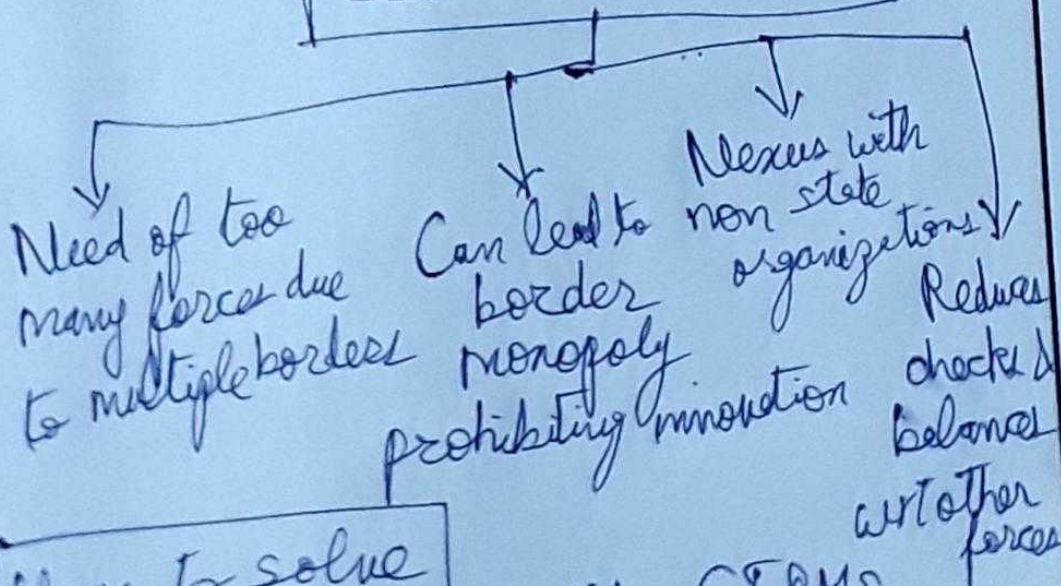 Need of too
many forces due
to multiple borders
Can lead to
border
monopoly
prohibiting innovation
Nexus with
non state
organizations
Reduces
checks &
balances
wrt other
forces
to solve